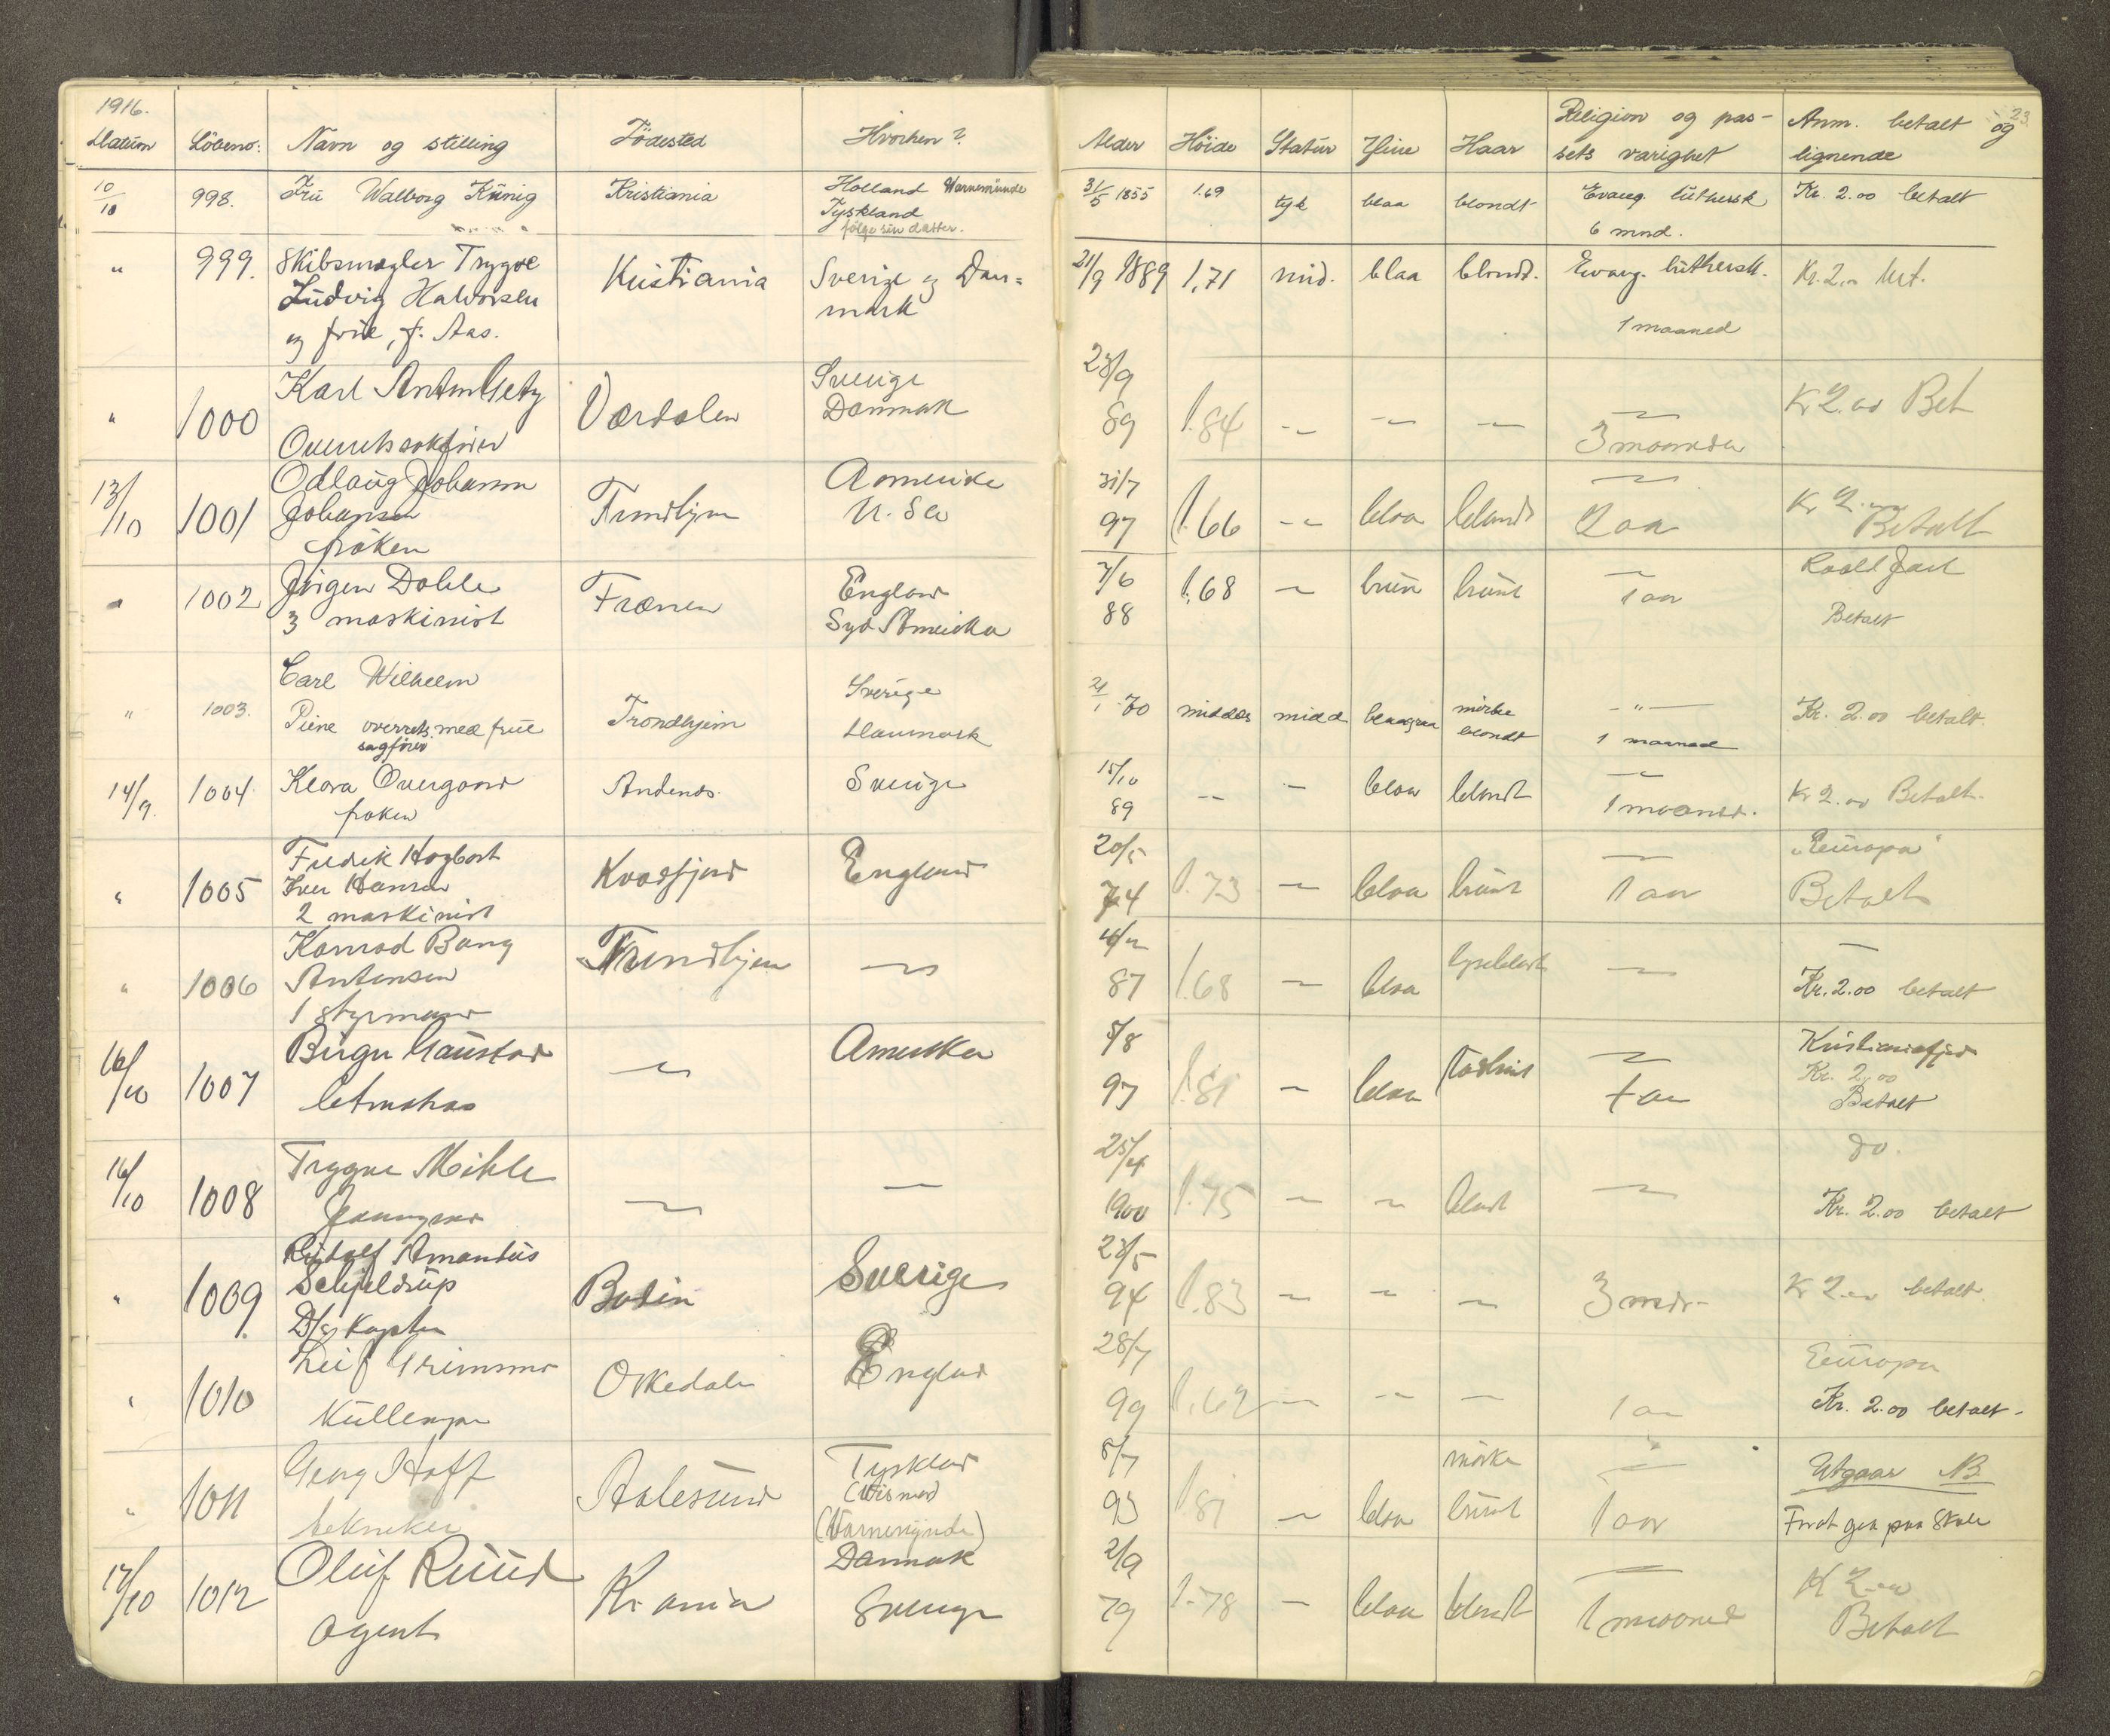 1916.
Datum Löbeno: Navn og stilling Födested Hvorhen? Alder Höide Statur Öine Haar Religion og pas- sets varighet Anm. betalt og lignende 23
10/10 998. Frü Walborg König Kristiania Holland Warnemünde 31/5 1855 1.69 tyk blaa blondt Evang. lüthersk Kr. 2.00 betalt
Tyskland 6 mnd.
følge sin datter.
" 999. Skibsmægler Trygve Kristiania Sverige og Dan= 21/9 1889 1,71 mid. blaa blond. Evang. lüthersk. Kr. 2,00 bet.
Lüdvig Halvorsen mark
og frue, f. Aas. 1 maaned
" 1000 Karl Anton Værdalen Sverige 23/9 89 1.84 -"- -"- -"- -"- Kr 2.00 Bet
Overretssakfører Danmark 3 maaneder
13/10 1001 Odlaug Johanna Trondhjem Amerika 31/7 97 1.66 -"- blaa blondt -"- Kr 2.00
Johansen U.S.a 2 aar Betalt
frøken
" 1002 Jørgen Dahle Frænen England 7/6 88 1.68 - brun brunt -"- Roald Jarl
3 maskinist Syd Amerika 1 aar Betalt
" 1003. Carl Wilhelm Trondhjem Sverige 21/1 70 middels midd blaagraa mörke blondt -"- Kr. 2.00 betalt.
Piene overrets med frue Danmark 1 maaned
sagförer
14/9. 1004. Klara Overgaard Andenes. Sverige 15/10 89 -- - blaa blondt -"- Kr 2.00 Betalt.
frøken 1 maaned.
" 1005 Fredrik Hagbart Kvæfjord England 20/5 74 1.73 - blaa brunt -"- "Europa"
Iver Hansen 1 aar Betalt
2 maskinist
" 1006 Konrad Bang Trondhjem -"- 87 1.68 - blaa lyseblondt -"- -
Antonsen Kr. 2.00 betalt
1 styrmand
16/10 1007 Birger Gaustad -"- Amerika 5/8 97 1.81 - blaa -"- Kristianiafjord
1 aar Kr. 2,00
Betalt
16/10 1008 Trygve -"- -"- 25/4 1900 1.75 - - blondt -"- do.
Jungmand Kr. 2.00 betalt
" 1009 Rudolf Amandus Bodin Sverige 23/5 94 1.83 - - - 3 mdr- Kr 2.00 betalt.
Schjeldrup
D/s Kaptein
" 1010 Leif Grimsmo Orkedalen England 28/7 99 1.62 - - - 1 aar Europa
Kullemper Kr. 2.00 betalt-
" 1011 Georg Hoff Aalesund Tyskland 8/7 93 1.81 - blaa mörke brunt -"- Utgaar NB
tekniker (Wismar) 1 aar Først gaa paa Skole
(Warnemynde)
17/10 1012 Oluf Ruud Kr.ania Danmark 2/9 79 1.78 - blaa blondt - K 2.00
agent Sverige 1 maaned Betalt